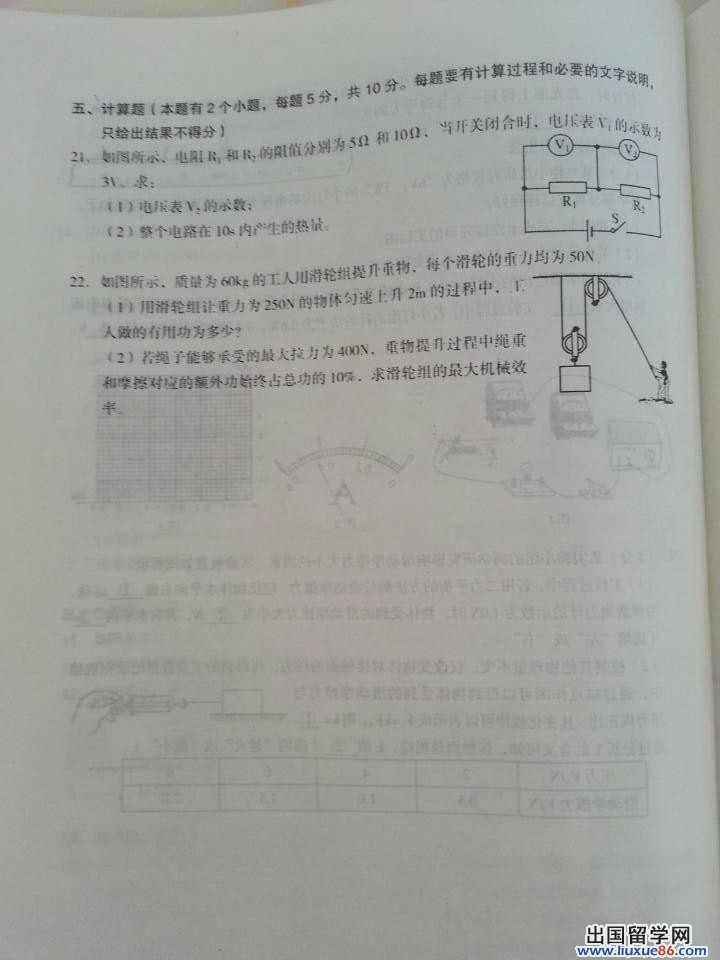 五、计算题(本题有2个小题，每题5分，共10分。每题要有计算过程和必要的文字说明，
只给出结果不得分)
21. 如图所示，电阻R₁和R₂的阻值分别为5Ω和10Ω，当开关闭合时，电压表V₁的示数为
3V。求：
(1)电压表V₂的示数；
(2)整个电路在10s内产生的热量。
V₁ V₂
R₁ R₂
S
22. 如图所示，质量为60kg的工人用滑轮组提升重物，每个滑轮的重力均为50N。
(1)用滑轮组让重力为250N的物体匀速上升2m的过程中，工
人做的有用功为多少?
(2)若绳子能够承受的最大拉力为400N，重物提升过程中绳重
和摩擦对应的额外功始终占总功的10%，求滑轮组的最大机械效
率。
出国留学网
www.liuxue86.com